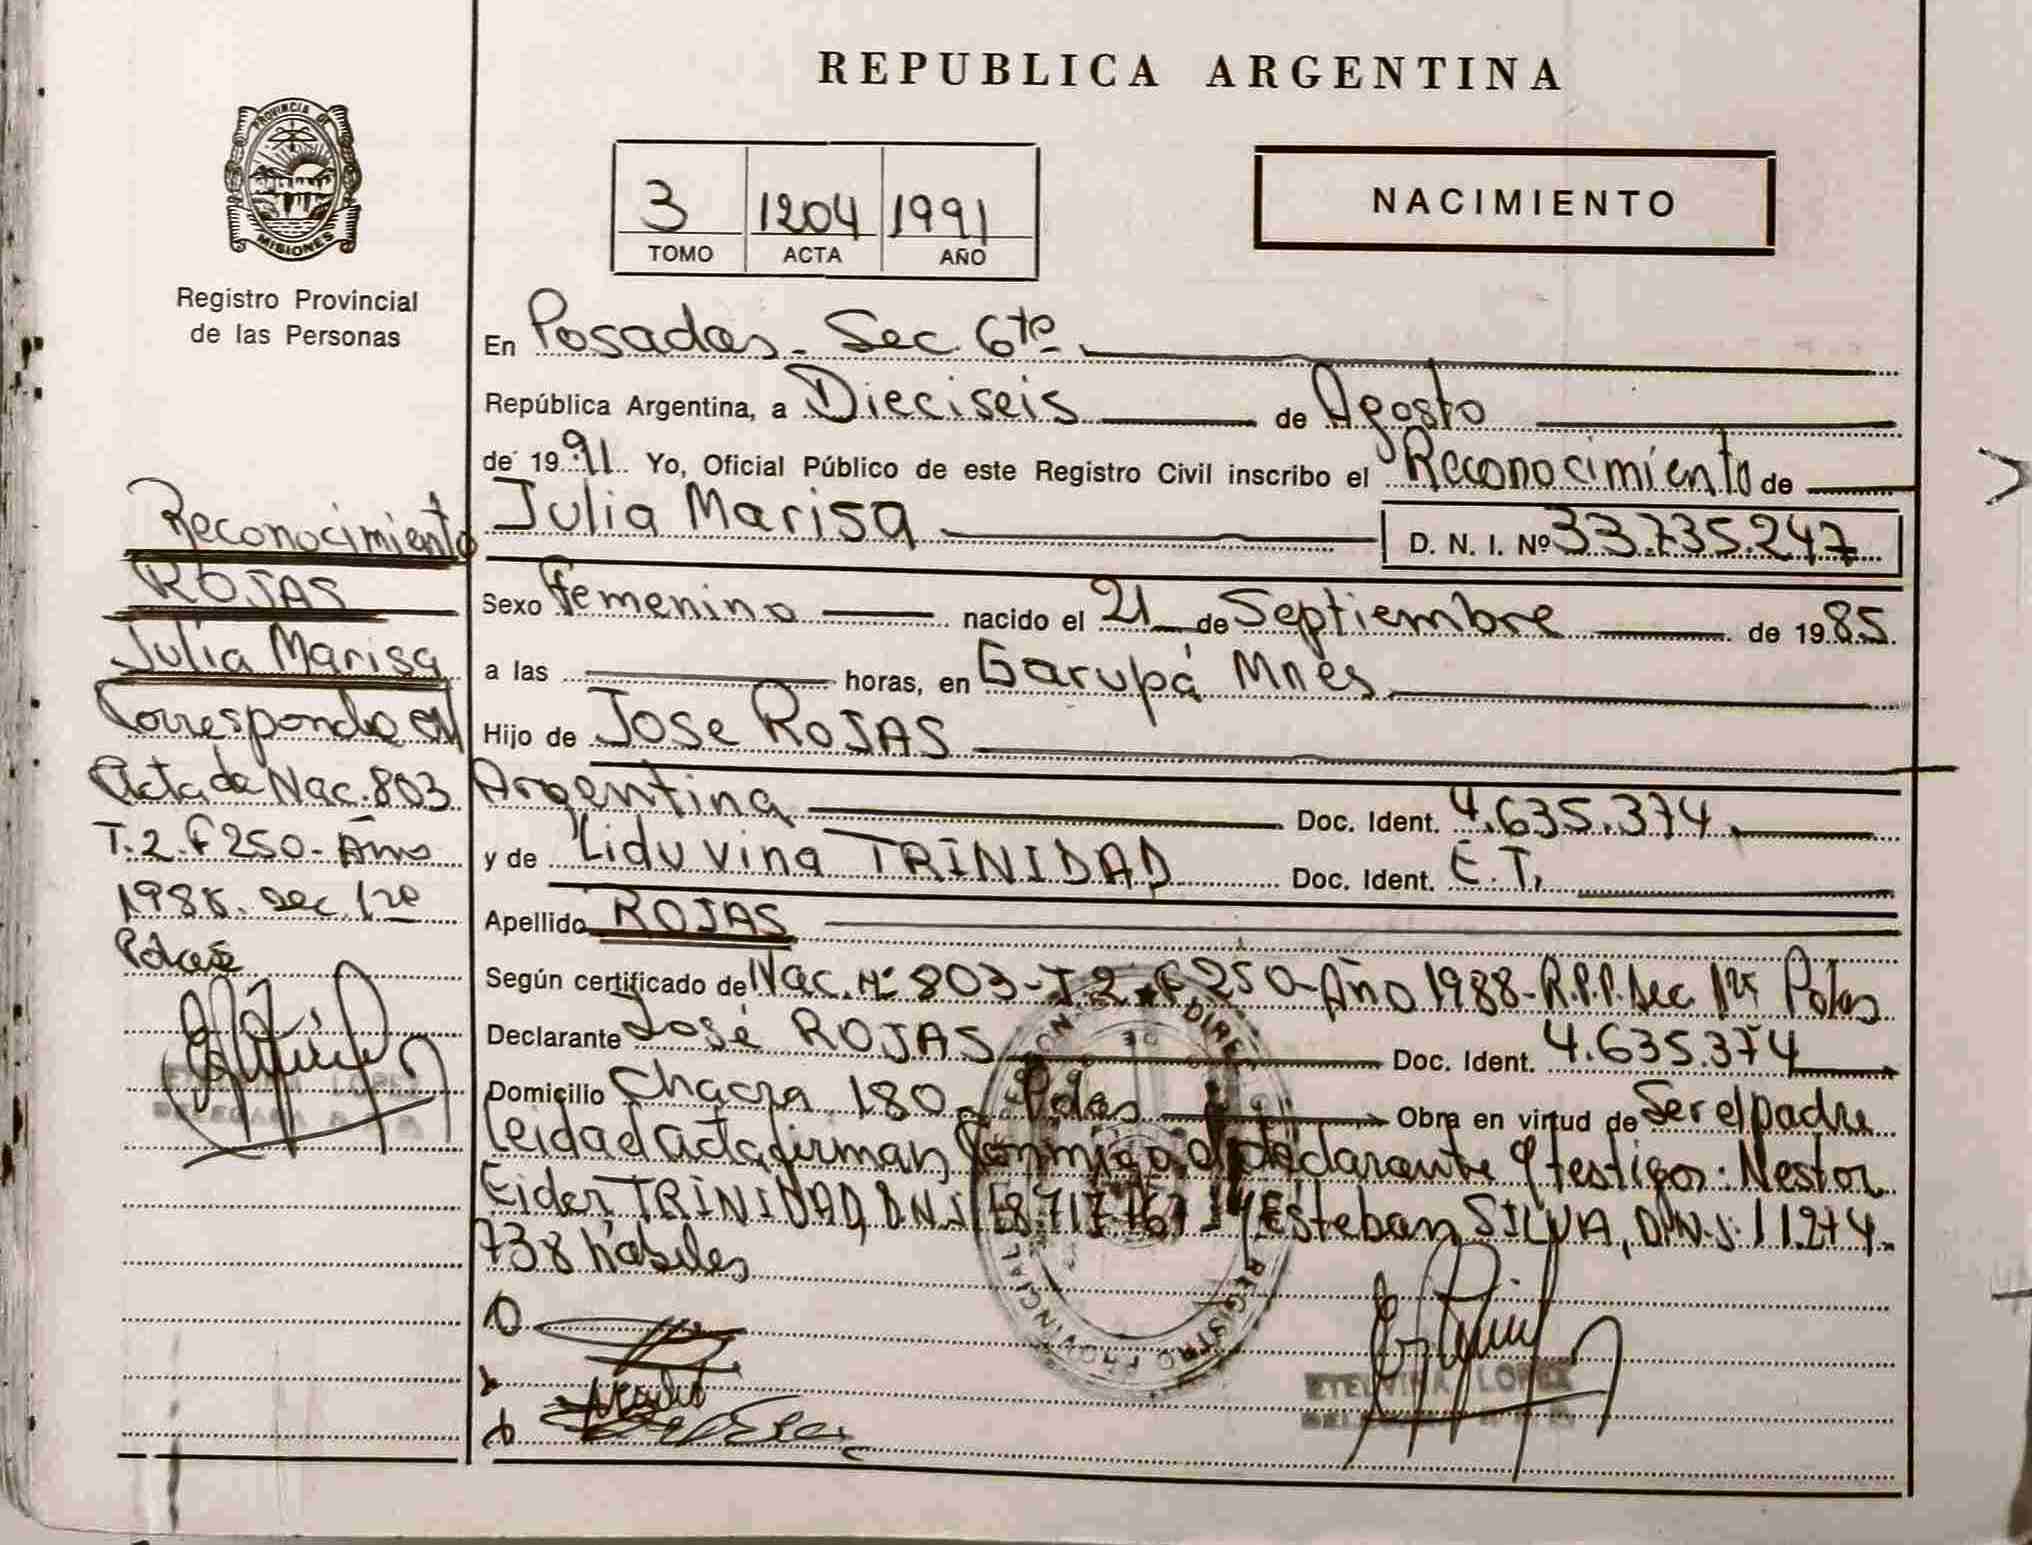 REPUBLICA ARGENTINA
PROVINCIA DE
MISIONES
Registro Provincial
de las Personas
3 1204 1991
TOMO ACTA AÑO
NACIMIENTO
En Posadas - Sec. 6ta
República Argentina, a Dieciseis de Agosto
de 1991 Yo, Oficial Público de este Registro Civil inscribo el Reconocimiento de
Julia Marisa D. N. I. Nº 33.735.247
Sexo Femenino nacido el 21 de Septiembre de 1985
a las horas, en Garupá Mnes
Hijo de Jose ROJAS
Argentina Doc. Ident. 4.635.374
y de Liduvina TRINIDAD Doc. Ident. E.T.
Apellido ROJAS
Según certificado de Nac. Nº 803 - T. 2 - F. 250 - Año 1988 - R.P.P. Sec 1ra Pdas
Declarante José ROJAS Doc. Ident. 4.635.374
Domicilio Chacra 180 - Pdas Obra en virtud de Ser el padre
Leida el acta firman conmigo el declarante y testigos: Nestor
Eider TRINIDAD, D.N.I. y Esteban SILVA, D.N.I. 11.274.
738 hábiles
Reconocimiento
ROJAS
Julia Marisa
Corresponde al
Acta de Nac. 803
T. 2 F 250 - Año
1988. Sec. 1ra
Pdas
DIRECCION
REGISTRO PROVINCIAL DE
ETELVINA LOPEZ